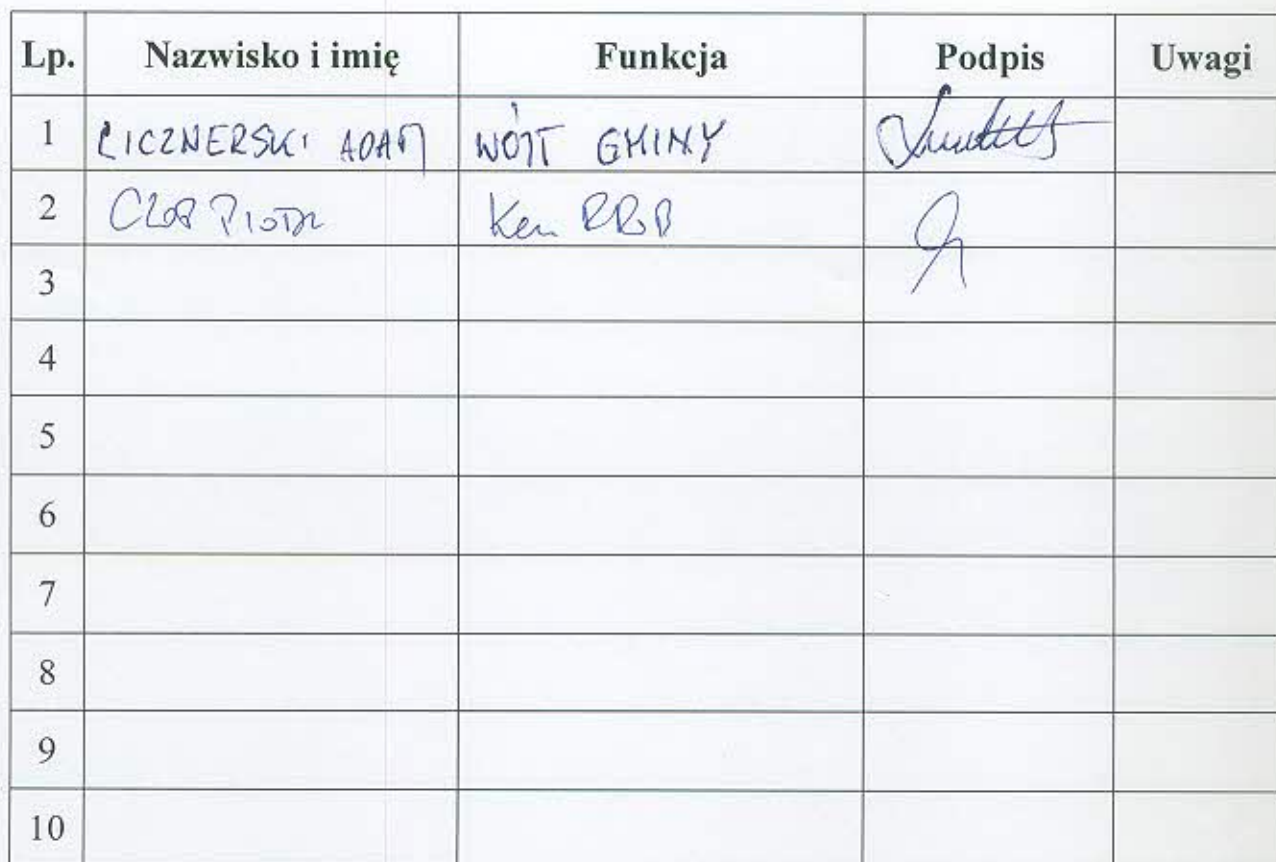 Lp. Nazwisko i imię Funkcja Podpis Uwagi
1 LICZNERSKI ADAM WÓJT GMINY
2 PIOTR
3
4
5
6
7
8
9
10